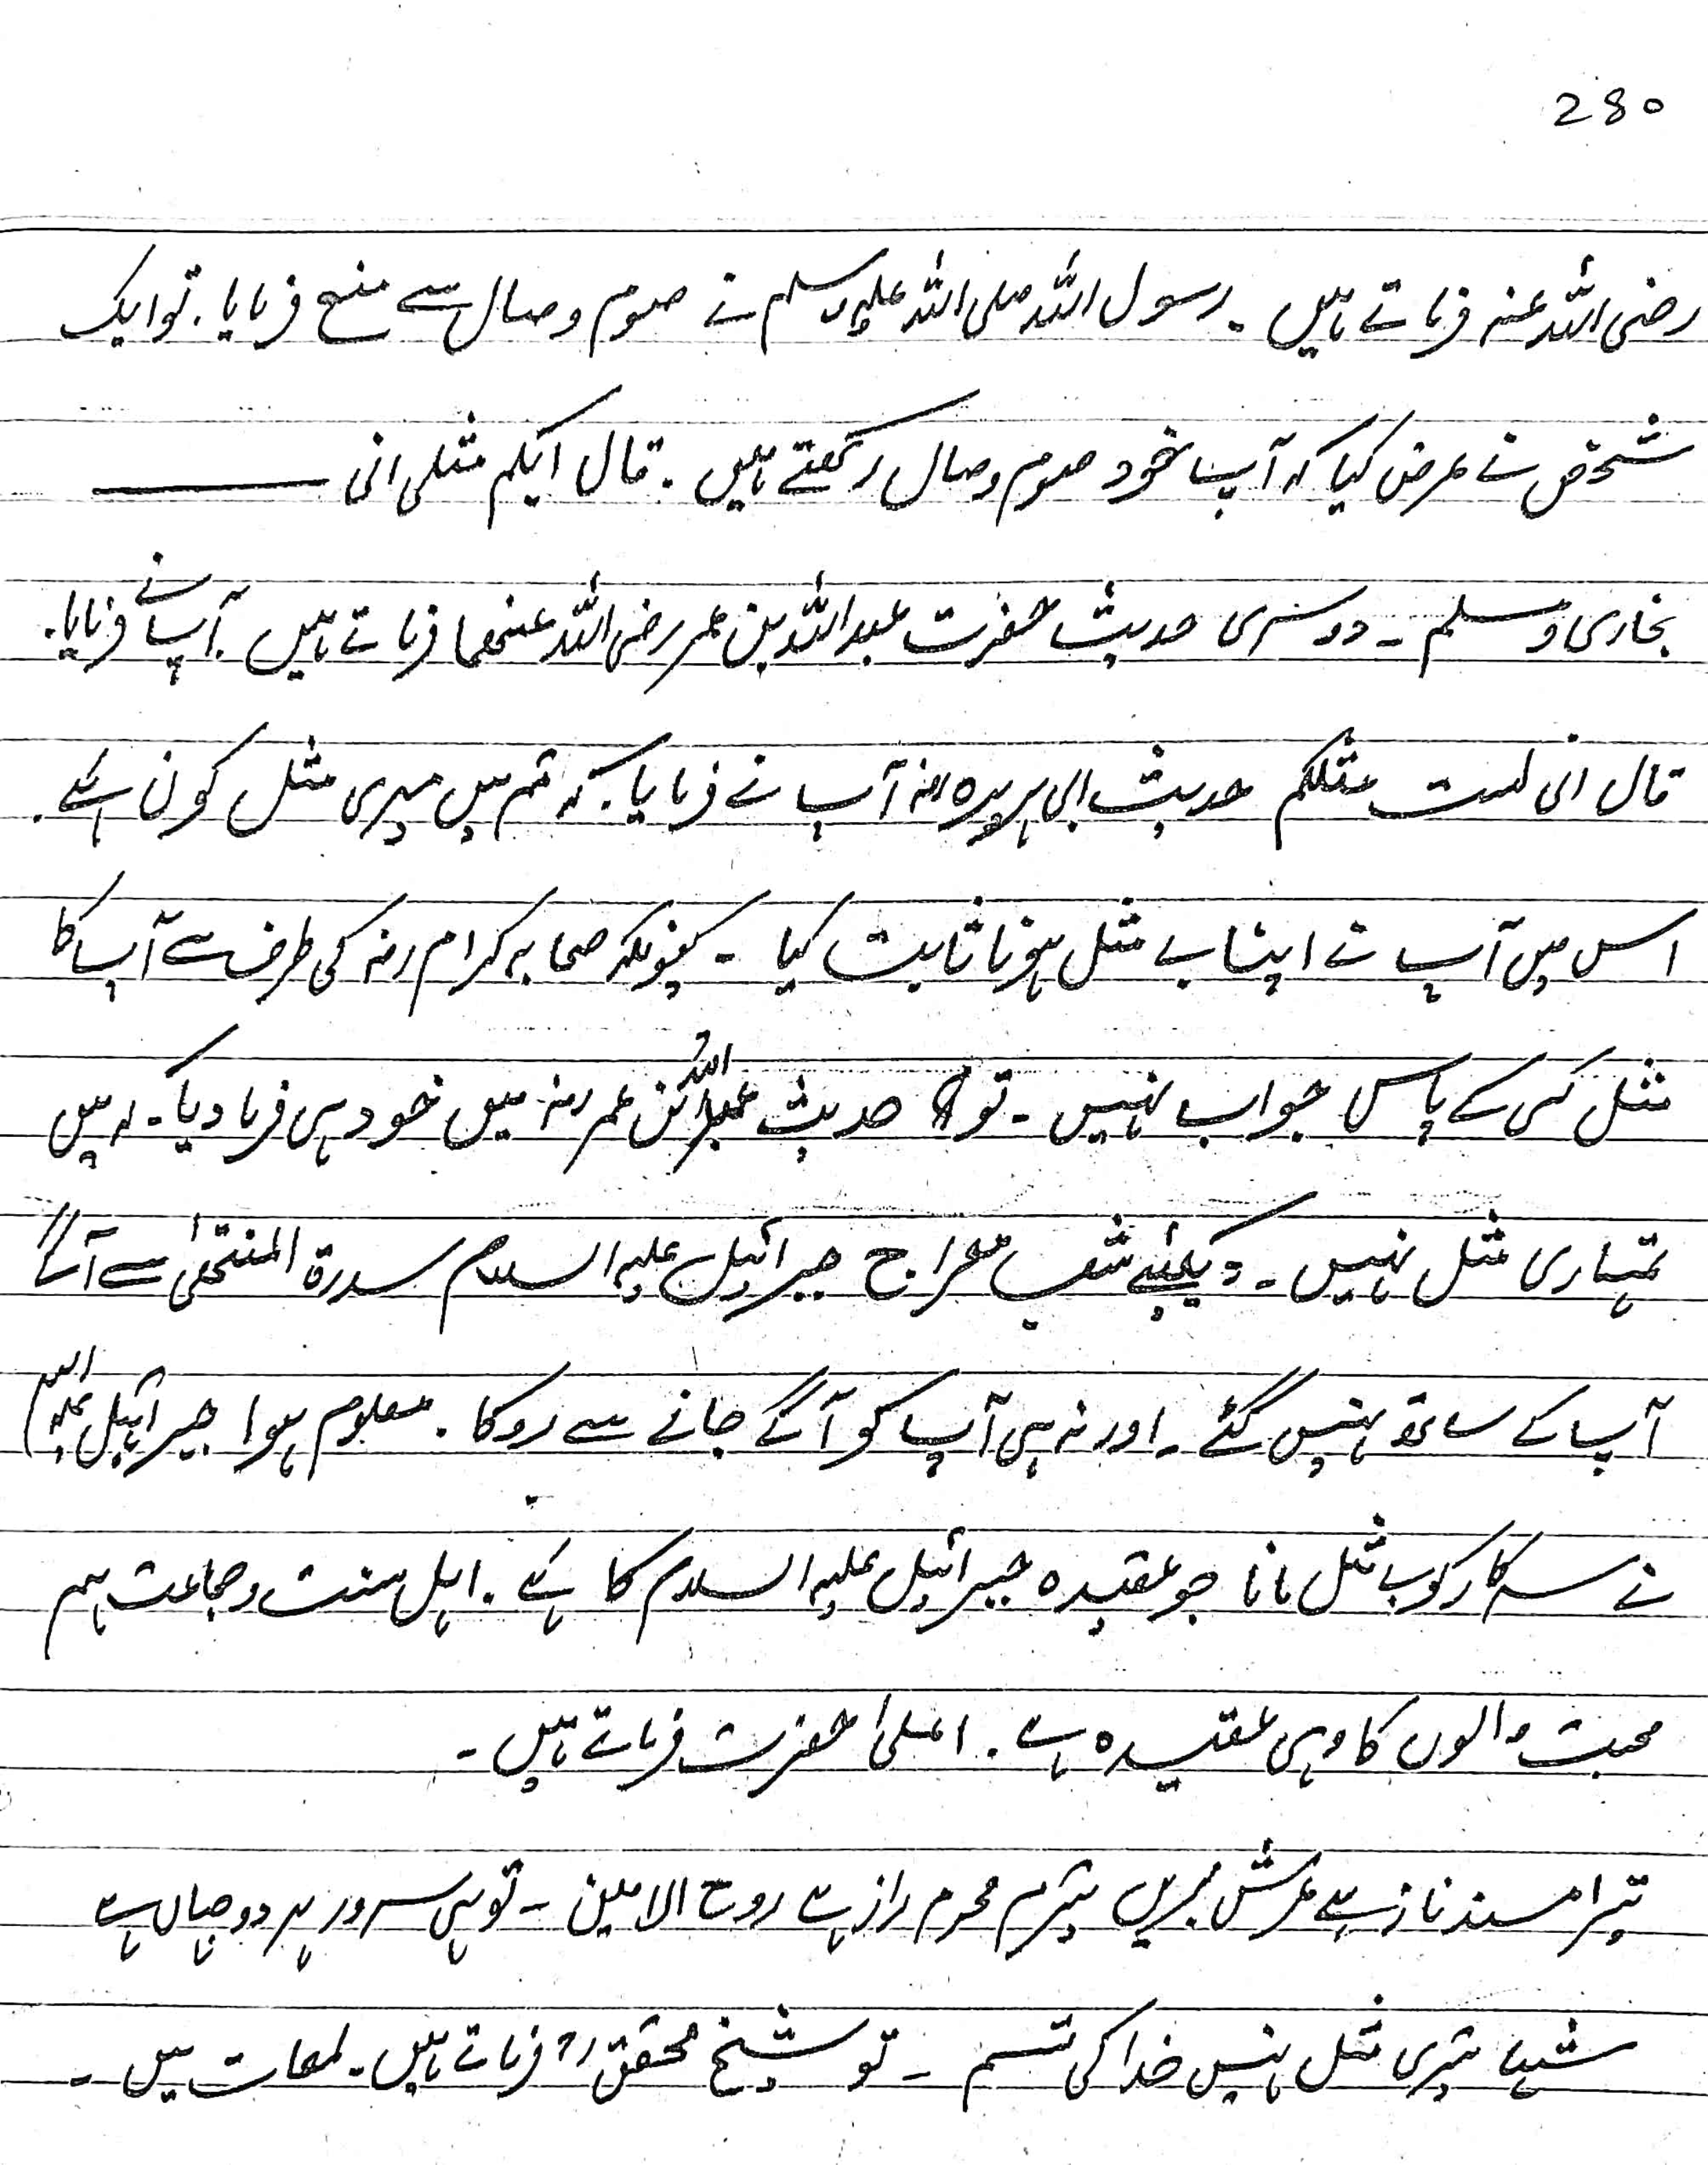 280
رضی اللہ عنہ فرماتے ہیں ۔ رسول اللہ صلی اللہ علیہ وسلم نے صوم وصال سے منع فرمایا ۔ تو ایک
شخص نے عرض کیا کہ آپ خود صوم وصال رکھتے ہیں ۔ قال ایکم مثلی انی ——
بخاری و مسلم ۔ دوسری حدیث حضرت عبداللہ بن عمر رضی اللہ عنھما فرماتے ہیں ۔ آپ نے فرمایا ۔
قال انی لست مثلکم حدیث ابی ہریرہ رضہ آپ نے فرمایا ۔ کہ تم میں میری مثل کون ہے ۔
اس میں آپ نے اپنا بے مثل ہونا ثابت کیا ۔ کیونکہ صحابہ کرام رضہ کی طرف سے آپ کا
مثل کسی کے پاس جواب نہیں ۔ تو حدیث عبداللہ بن عمر رضہ میں خود ہی فرما دیا ۔ کہ میں
تمہاری مثل نہیں ۔ دیکھئے شب معراج جبرائیل علیہ السلام سدرۃ المنتھیٰ سے آگے
آپ کے ساتھ نہیں گئے ۔ اور نہ ہی آپ کو آگے جانے سے روکا ۔ معلوم ہوا جبرائیل علیہ السلام
نے سرکار کو بے مثل مانا جو عقیدہ جبرائیل علیہ السلام کا ہے ۔ اہل سنت و جماعت ہم
محبت والوں کا وہی عقیدہ ہے ۔ اعلیٰ حضرت فرماتے ہیں ۔
تیرا مسند ناز ہے عرش بریں تیرا محرم راز ہے روح الامین ۔ تو ہی سرور ہر دو جہاں ہے
شہا تیری مثل نہیں خدا کی قسم ۔ تو شیخ محقق رح فرماتے ہیں ۔ لمعات میں ۔